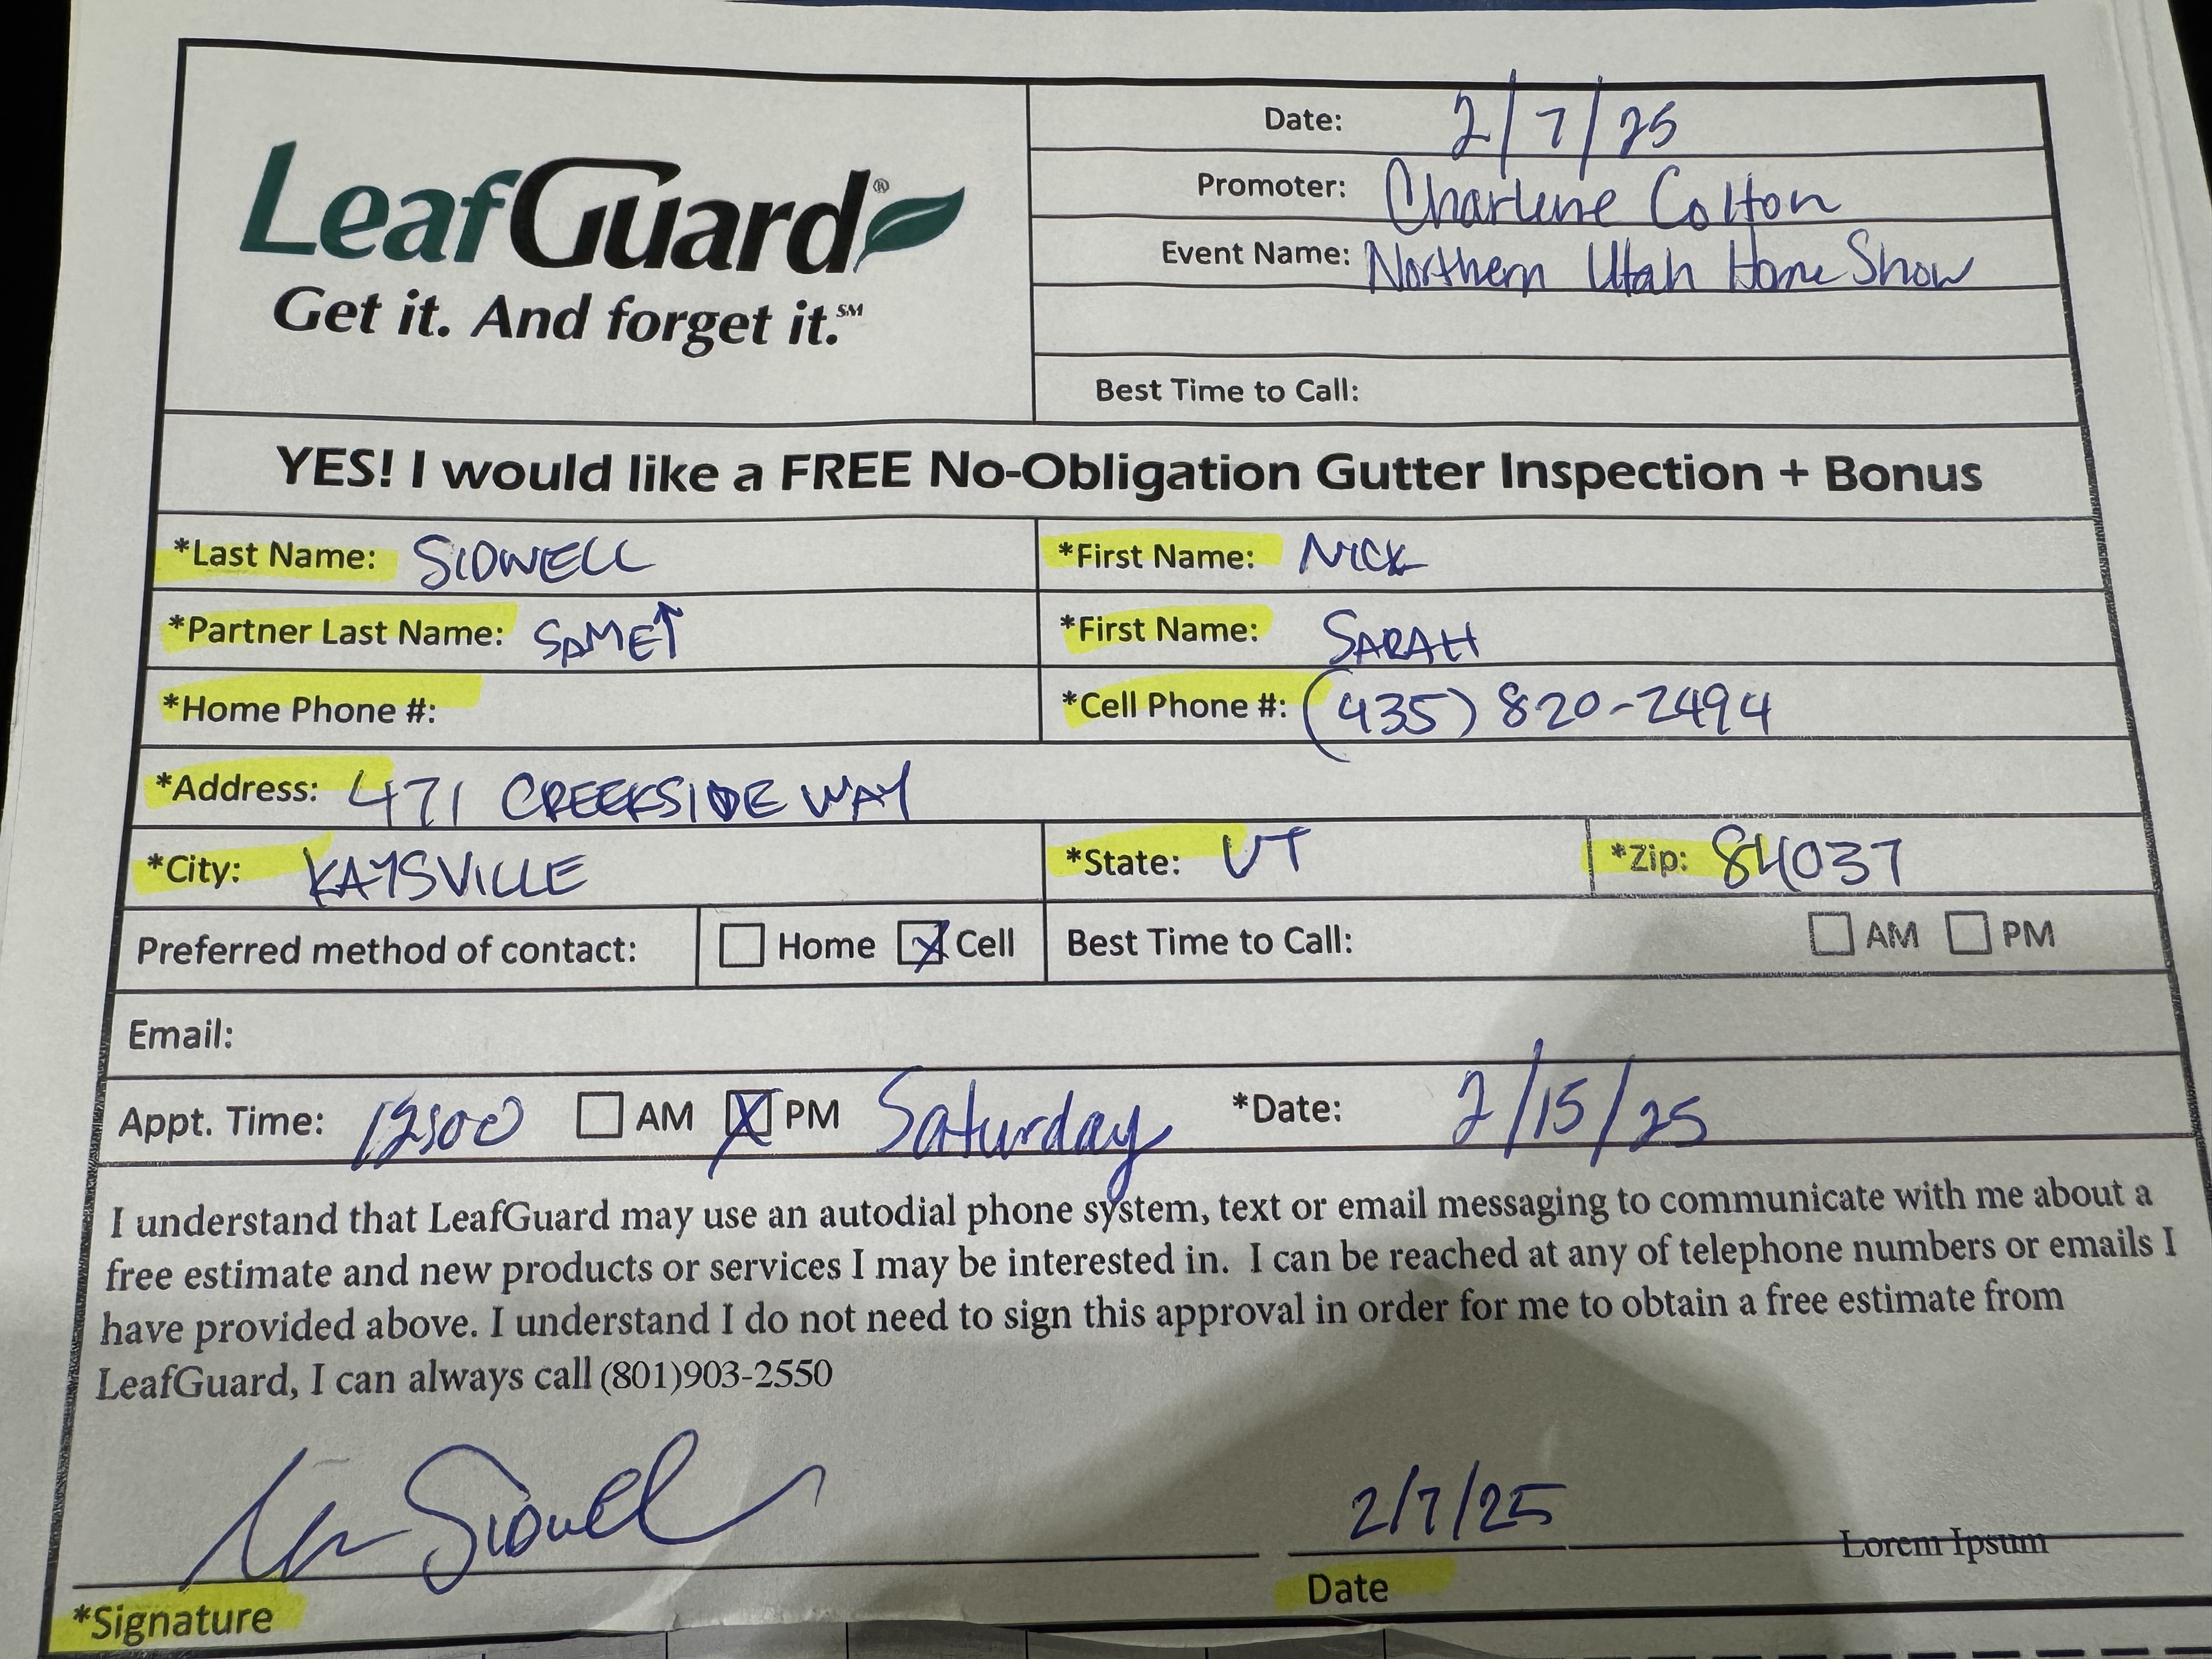 LeafGuard®
Get it. And forget it.℠
Date: 2/7/25
Promoter: Charlene Colton
Event Name: Northern Utah Home Show
Best Time to Call:
YES! I would like a FREE No-Obligation Gutter Inspection + Bonus
*Last Name: SIDWELL *First Name: NICK
*Partner Last Name: SAME↑ *First Name: SARAH
*Home Phone #: *Cell Phone #: (435) 820-2494
*Address: 471 CREEKSIDE WAY
*City: KAYSVILLE *State: UT *Zip: 84037
Preferred method of contact: ☐ Home ☒ Cell Best Time to Call: ☐ AM ☐ PM
Email:
Appt. Time: 12:00 ☐ AM ☒ PM Saturday *Date: 2/15/25
I understand that LeafGuard may use an autodial phone system, text or email messaging to communicate with me about a
free estimate and new products or services I may be interested in. I can be reached at any of telephone numbers or emails I
have provided above. I understand I do not need to sign this approval in order for me to obtain a free estimate from
LeafGuard, I can always call (801)903-2550
Sidwell 2/7/25 Lorem Ipsum
*Signature Date